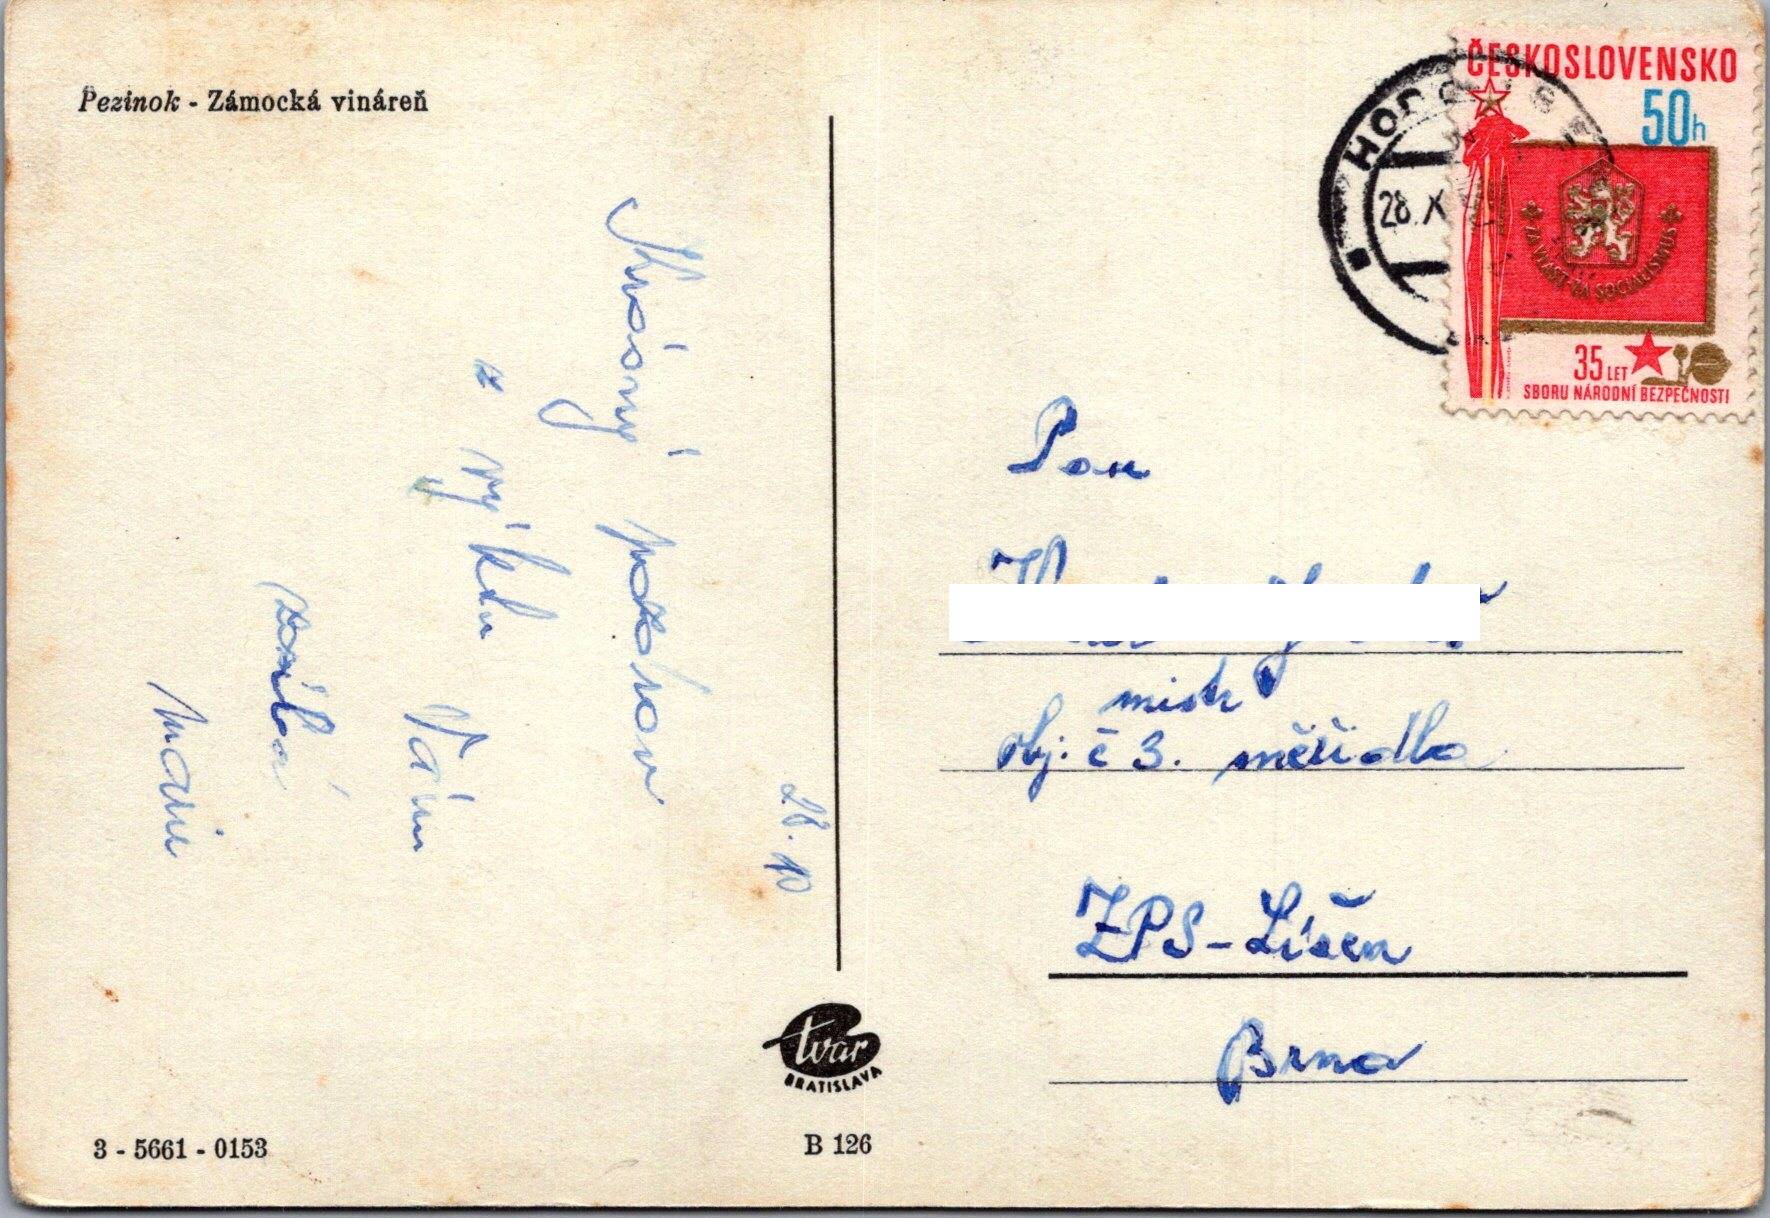 Pezinok - Zámocká vináreň
Krásný pozdrav
z výletu
Vám
zasílá
Marie
28. 10
tvar
BRATISLAVA
3 - 5661 - 0153
B 126
ČESKOSLOVENSKO
50h
ZA VLAST ZA SOCIALISMUS
35 LET
SBORU NÁRODNÍ BEZPEČNOSTI
28. X
Pan
mistr
obj. č 3. měřidla
ZPS - Líšeň
Brno